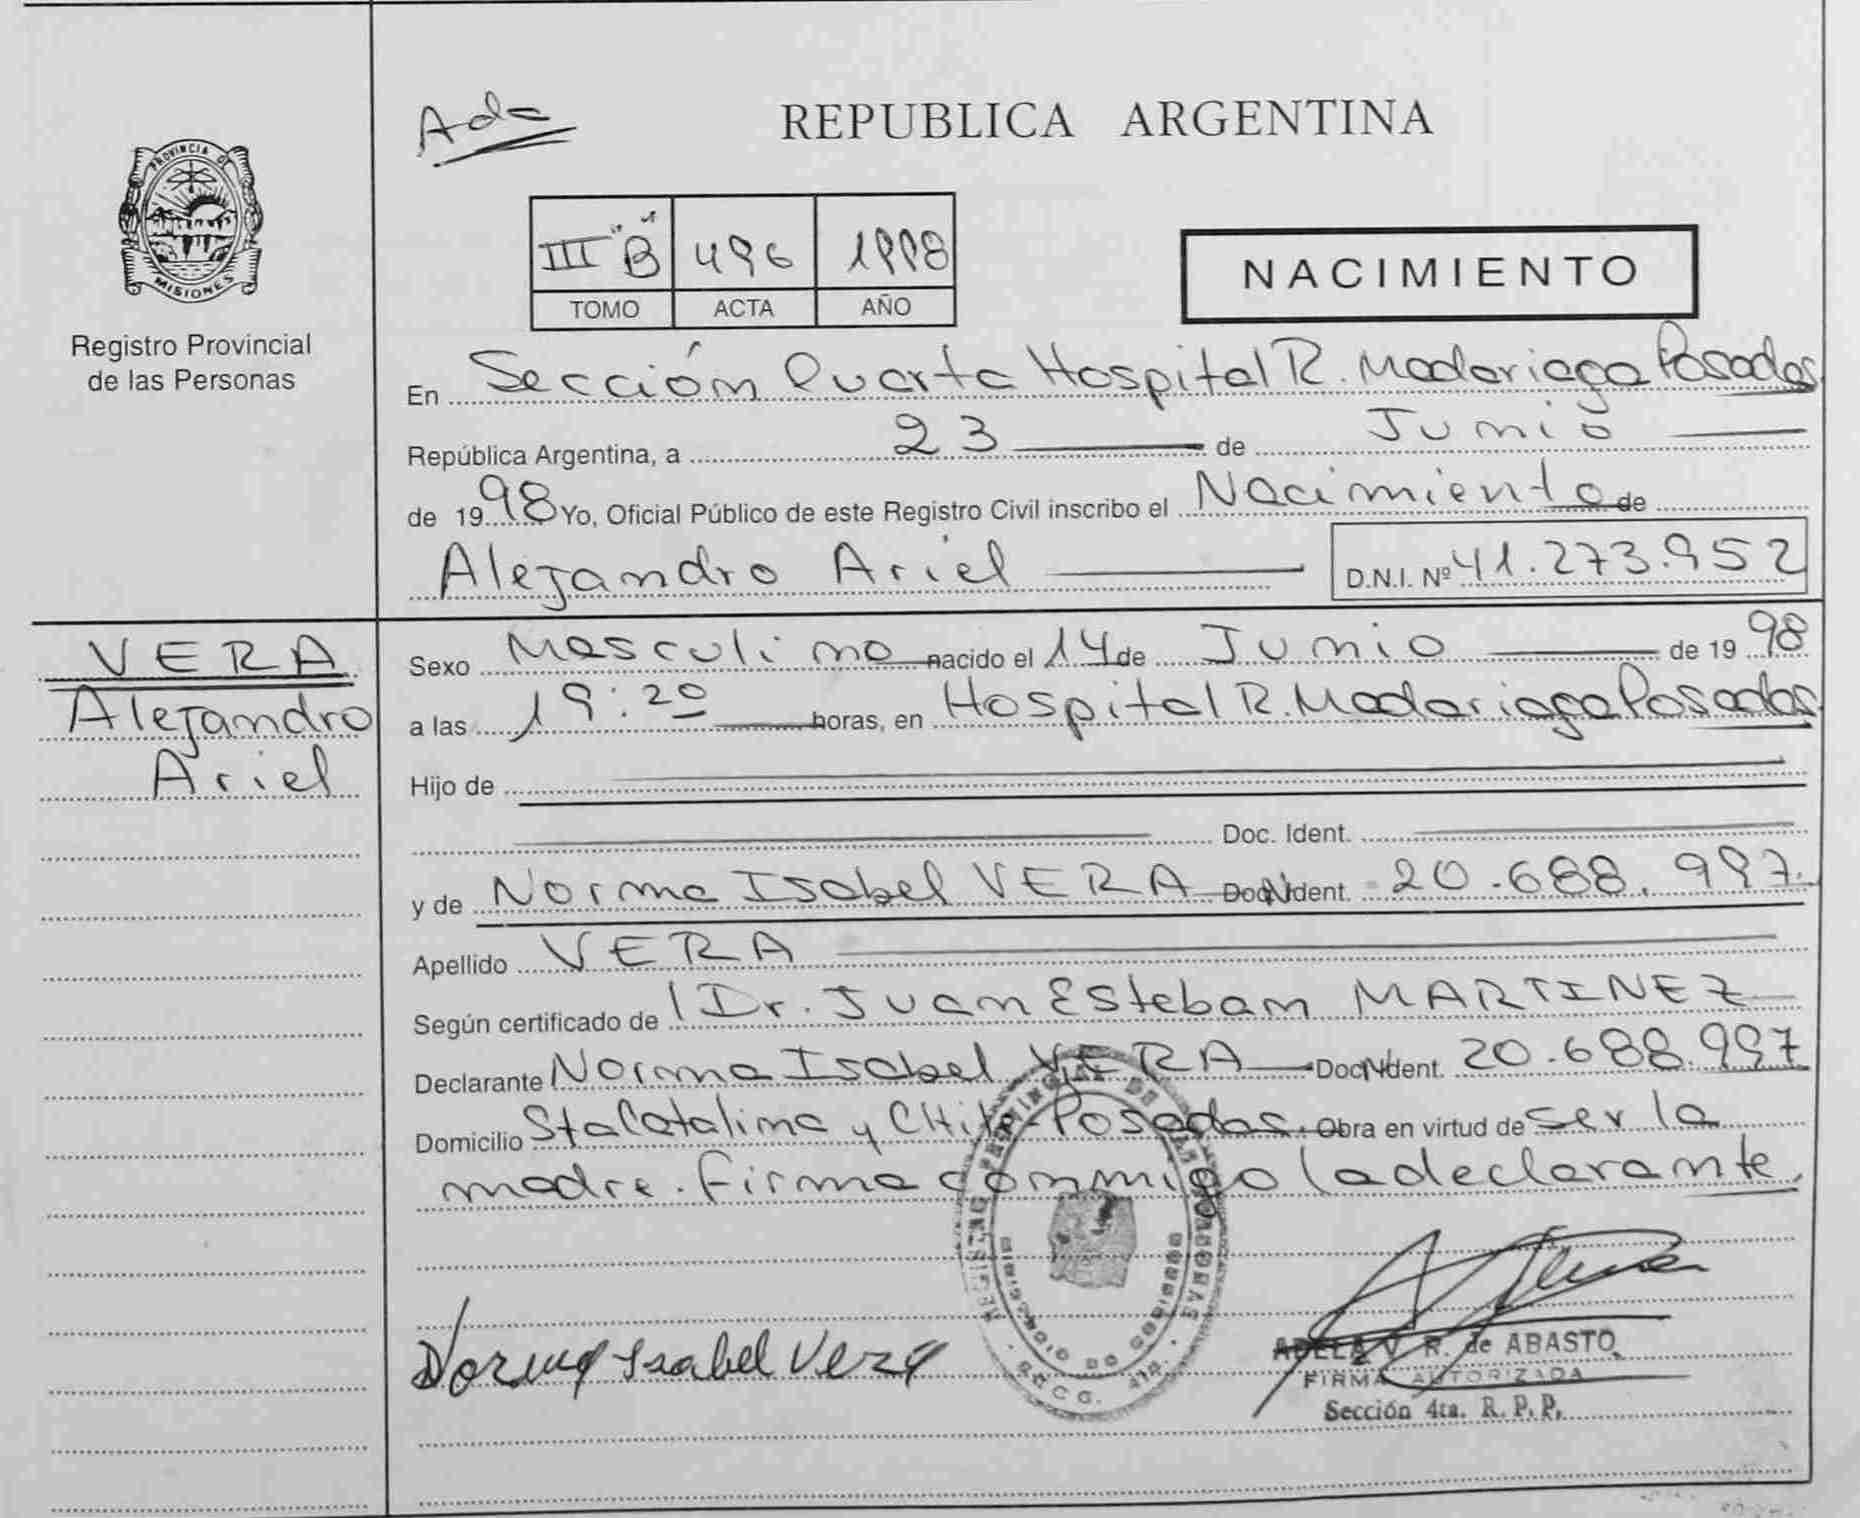 PROVINCIA DE
MISIONES
Registro Provincial
de las Personas
VERA
Alejandro
Ariel
Ada
REPUBLICA ARGENTINA
III "B" 496 1998
TOMO ACTA AÑO
NACIMIENTO
En Sección Cuarta Hospital R. Madariaga Posadas
República Argentina, a 23 de Junio
de 1998 Yo, Oficial Público de este Registro Civil inscribo el Nacimiento de
Alejandro Ariel D.N.I. Nº 41.273.952
Sexo Masculino nacido el 14 de Junio de 1998
a las 19:20 horas, en Hospital R. Madariaga Posadas
Hijo de
Doc. Ident.
y de Norma Isabel VERA Doc. Ident. 20.688.997.
Apellido VERA
Según certificado de l Dr. Juan Esteban MARTINEZ
Declarante Norma Isabel VERA Doc. Ident. 20.688.997
Domicilio Sta Catalina y CHile Posadas. Obra en virtud de ser la
madre. Firma conmigo la declarante.
Norma Isabel Vera
ADELA V. R. de ABASTO
FIRMA AUTORIZADA
Sección 4ta. R. P. P.